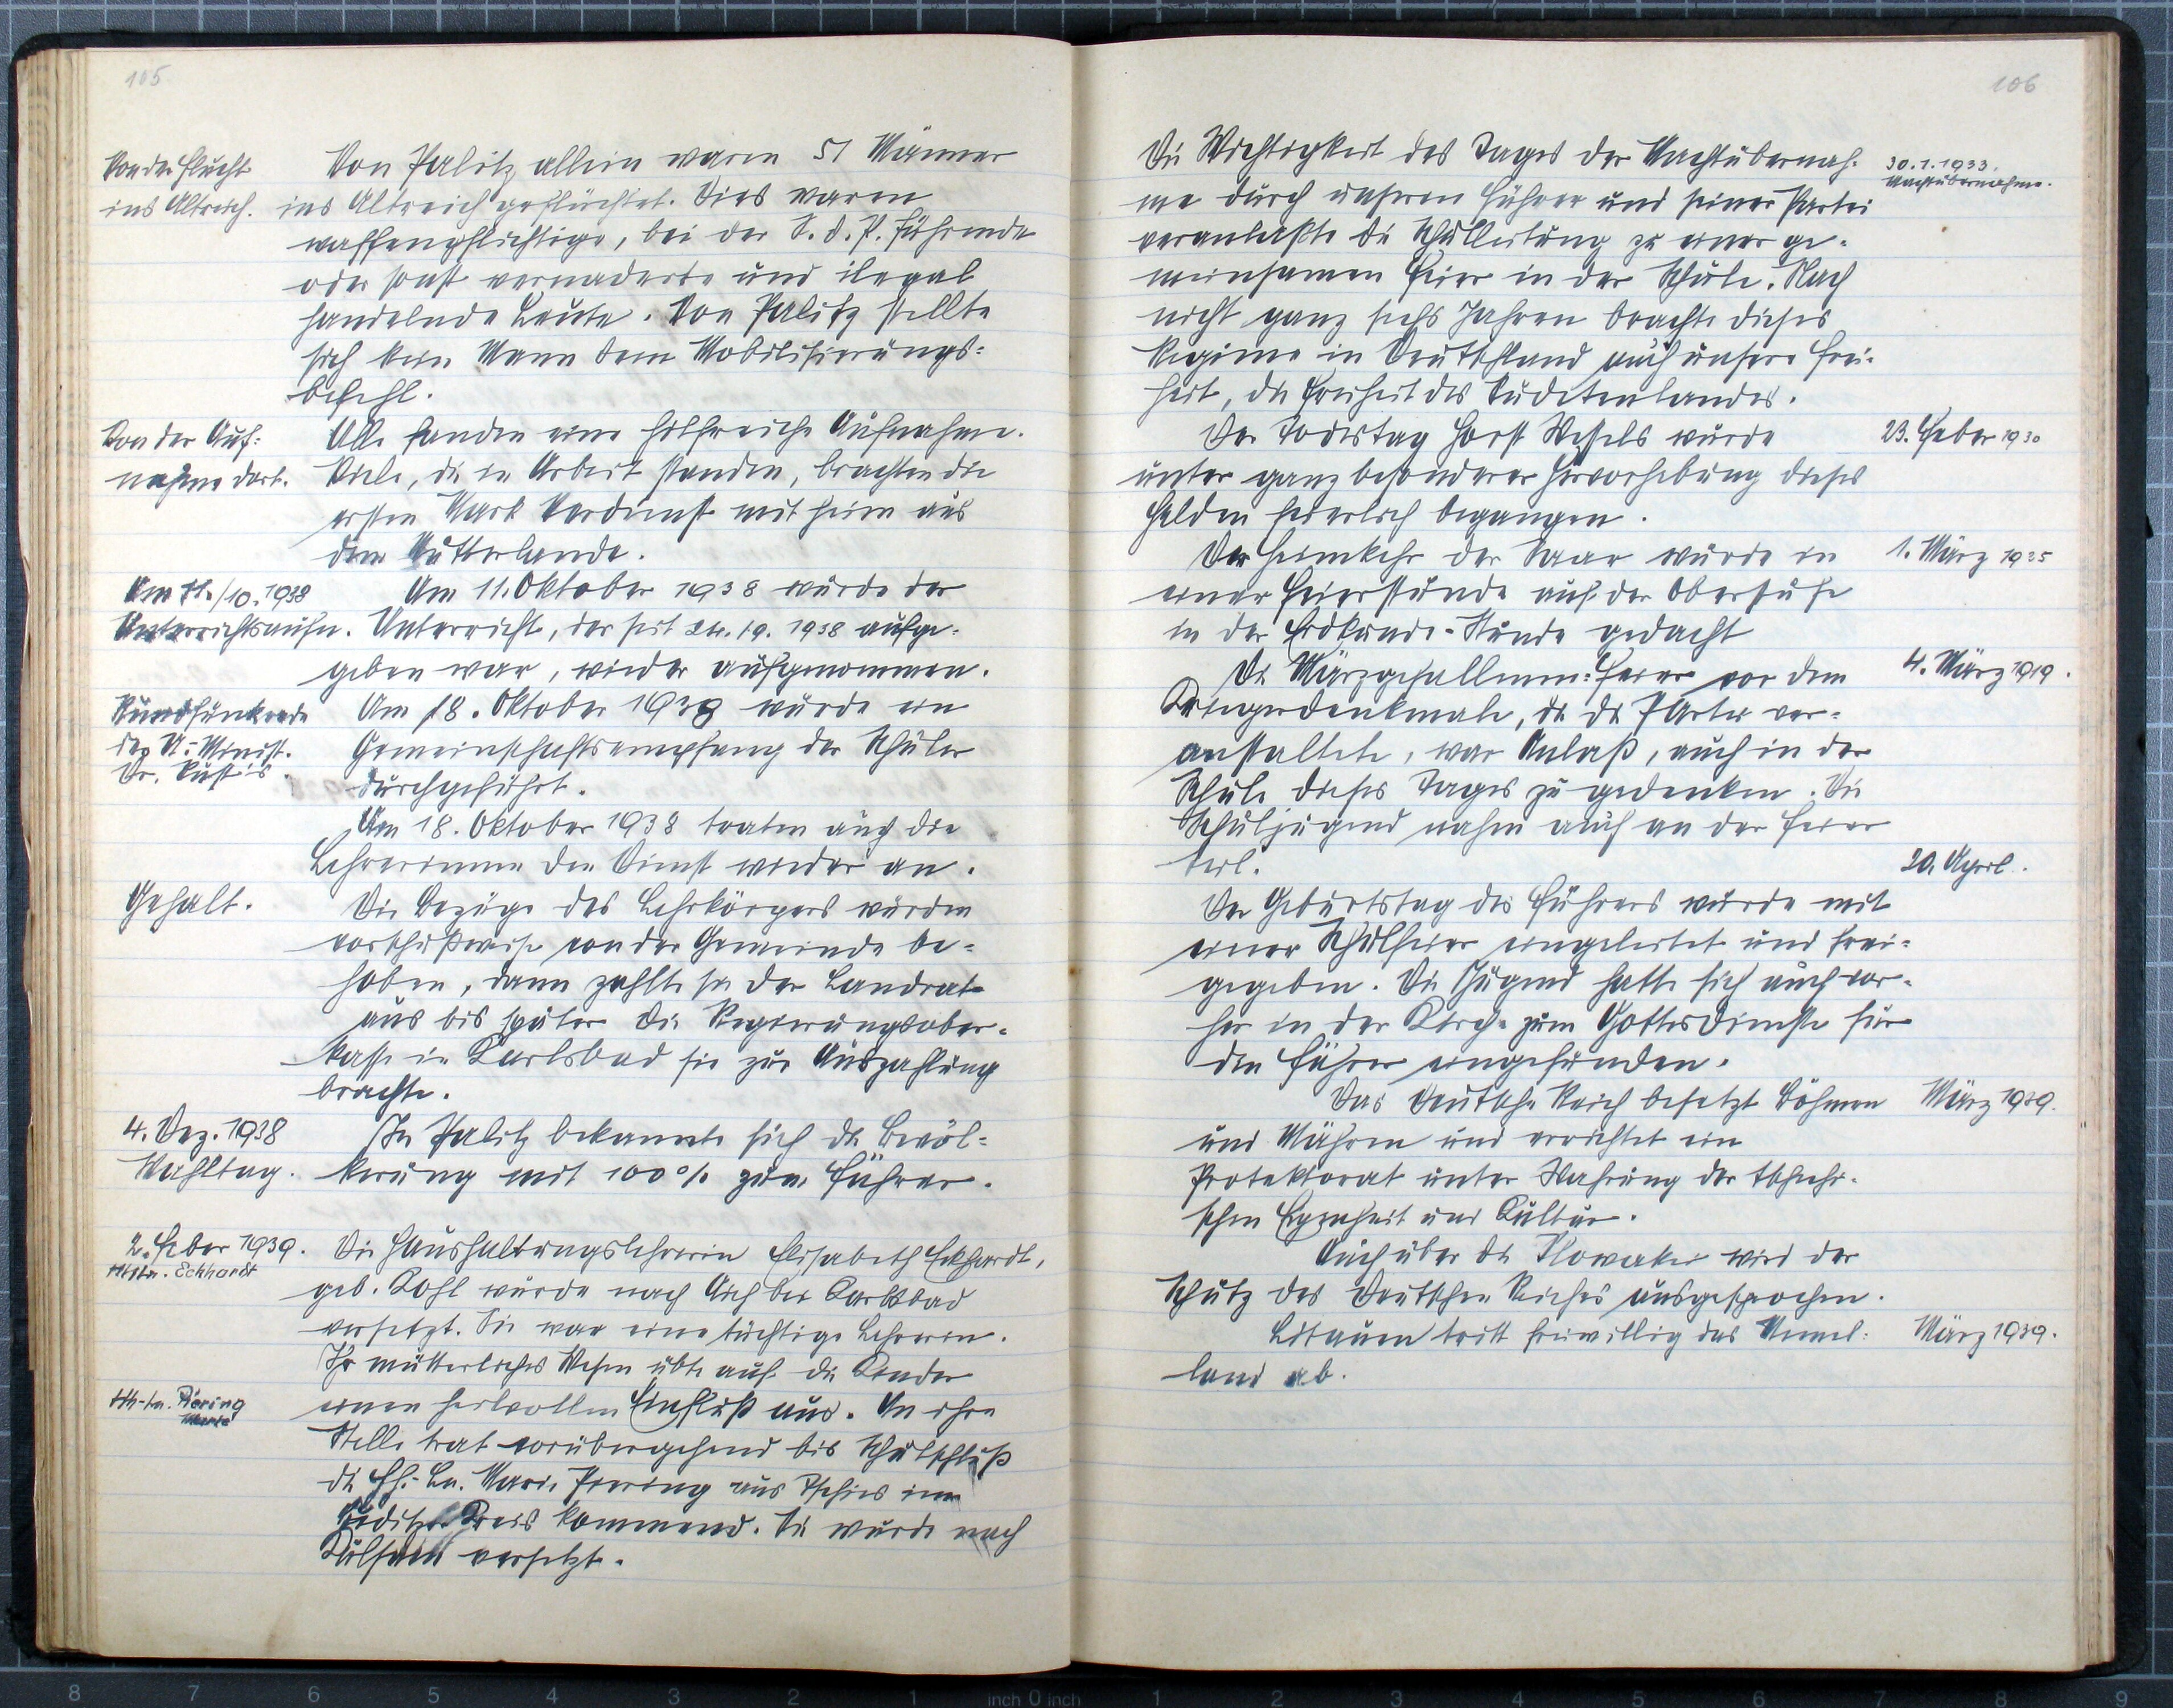 105
Von der Flucht
ins Altreich.
Von Palitz allein waren 51 Männer
ins Altreich geflüchtet. Dies waren
waffenpflichtige, bei der S.d.P. führende
oder sonst vernaderte und ilegal
handelnde Leute. Von Palitz stellte
sich kein Mann dem Mobilisierungs=
befehl.
Von der Auf=
nahme dort.
Alle fanden eine hilfreiche Aufnahme.
Viele, die in Arbeit standen, brachten die
ersten Mark Verdienst mit heim aus
dem Mutterlande.
Am 11./10. 1938
Unterrichtsaufn.
Am 11. Oktober 1938 wurde der
Unterricht, der seit 1938 aufge-
geben war, wieder aufgenommen.
Rundfunkrede
des U.-Minist.
Dr. Rust's.
Am 18. Oktober 1938 wurde ein
Gemeinschaftsempfang der Schüler
durchgeführt.
Am 18. Oktober 1938 traten auch die
Lehrerinnen den Dienst wieder an.
Gehalt.
Die Bezüge des Lehrkörpers wurden
vorschußweise von der Gemeinde be-
hoben, dann zahlte sie der Landrat
aus bis später die Regierungsober-
kasse in Karlsbad sie zur Auszahlung
brachte.
4. Dez. 1938
Wahltag.
In Palitz bekannte sich die Bevöl=
kerung mit 100% zum Führer.
2. Feber 1939.
Eckhardt
Die Haushaltungslehrerin Elisabeth Eckhardt,
geb. Kohl wurde nach Aich bei Karlsbad
versetzt. Sie war eine tüchtige Lehrerin.
Ihr mütterliches Wesen übte auf die Kinder
einen heilvollen Einfluß aus. An ihre
Piering
Marie
Stelle trat vorübergehend bis Schulschluß
die Marie Piering aus im
Kreis kommend. Sie wurde nach
versetzt.
106
Die Wichtigkeit des Tages der Machtübernah-
me durch unseren Führer und seiner Partei
veranlaßte die Schulleitung zu einer ge-
meinsamen Feier in der Schule. Nach
nicht ganz sechs Jahren brachte dieses
Regime in Deutschland auch unsere Frei-
heit, die Freiheit des Sudetenlandes.
30.1.1933.
Machtübernahme.
Der Todestag Horst Wessels wurde
unter ganz besonderer Hervorhebung dieses
Helden feierlich begangen.
23. Feber 1930
Der Heimkehr der Saar wurde in
einer Feierstunde auf der Oberstufe
in der Erdkunde-Stunde gedacht
1. März 1935
Die Märzgefallenen-Feier vor dem
Kriegerdenkmale, die die Partei ver-
anstaltete, war Anlaß, auch in der
Schule dieses Tages zu gedenken. Die
Schuljugend nahm auch an der Feier
teil.
4. März 1919.
20. April.
Der Geburtstag des Führers wurde mit
einer Schulfeier eingeleitet und frei-
gegeben. Die Jugend hatte sich auch vor-
her in der Kirche zum Gottesdienste für
den Führer eingefunden.
Das Deutsche Reich besetzt Böhmen
und Mähren und errichtet ein
Protektorat unter Wahrung der tschechi-
schen Eigenheit und Kultur.
März 1939.
Auch über die Slowakei wird der
Schutz des Deutschen Reiches ausgesprochen.
Litauen tritt freiwillig das Memel-
land ab.
März 1939.
8 7 6 5 4 3 2 1 inch 0 inch 1 2 3 4 5 6 7 8 9